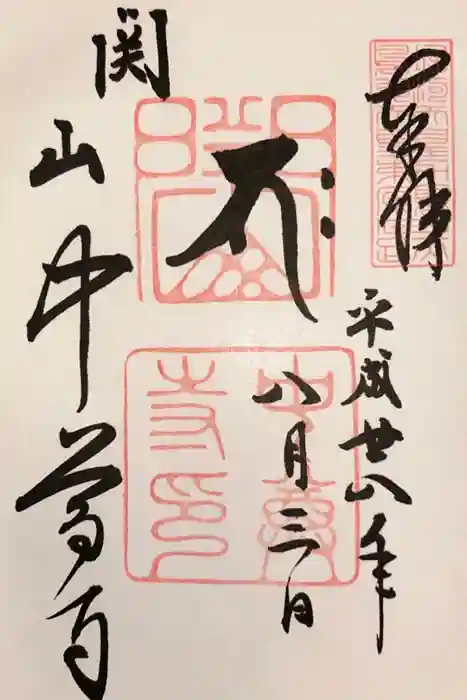 奉拝
平成廿八年
八月三日
関山中尊寺
中尊
寺印